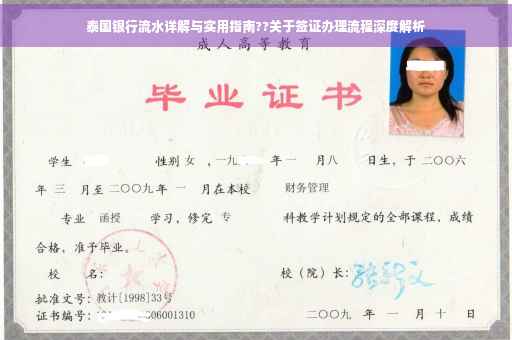 泰国银行流水详解与实用指南??关于签证办理流程深度解析
成人高等教育
毕业证书
学生 性别 女 ，一九 年 一 月八 日生，于 二〇〇六
年 三 月至 二〇〇九 年 一 月在本校 财务管理
专业 函授 学习，修完 专 科教学计划规定的全部课程，成绩
合格，准予毕业。
校 名： 校（院）长：
批准文号：教计[1998]33号
证书编号： 06001310 二〇〇九 年 一 月 十 日